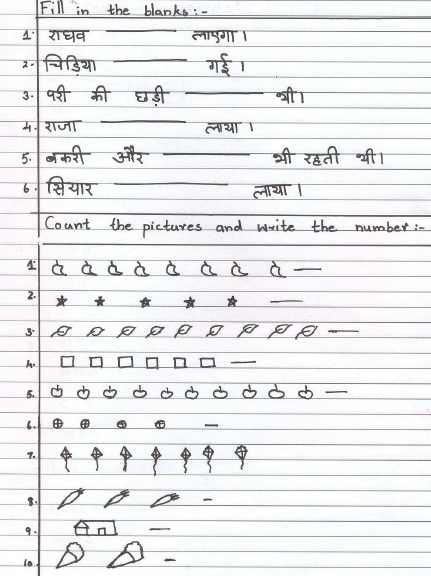 Fill in the blanks:-
1. राघव ———— लाएगा।
2. चिड़िया ———— गई।
3. परी की छड़ी ———— थी।
4. राजा ———— लाया।
5. बकरी और ———— भी रहती थी।
6. सियार ———— लाया।
Count the pictures and write the number:-
1. —
2. —
3. —
4. —
5. —
6. —
7.
8. —
9. —
10. —